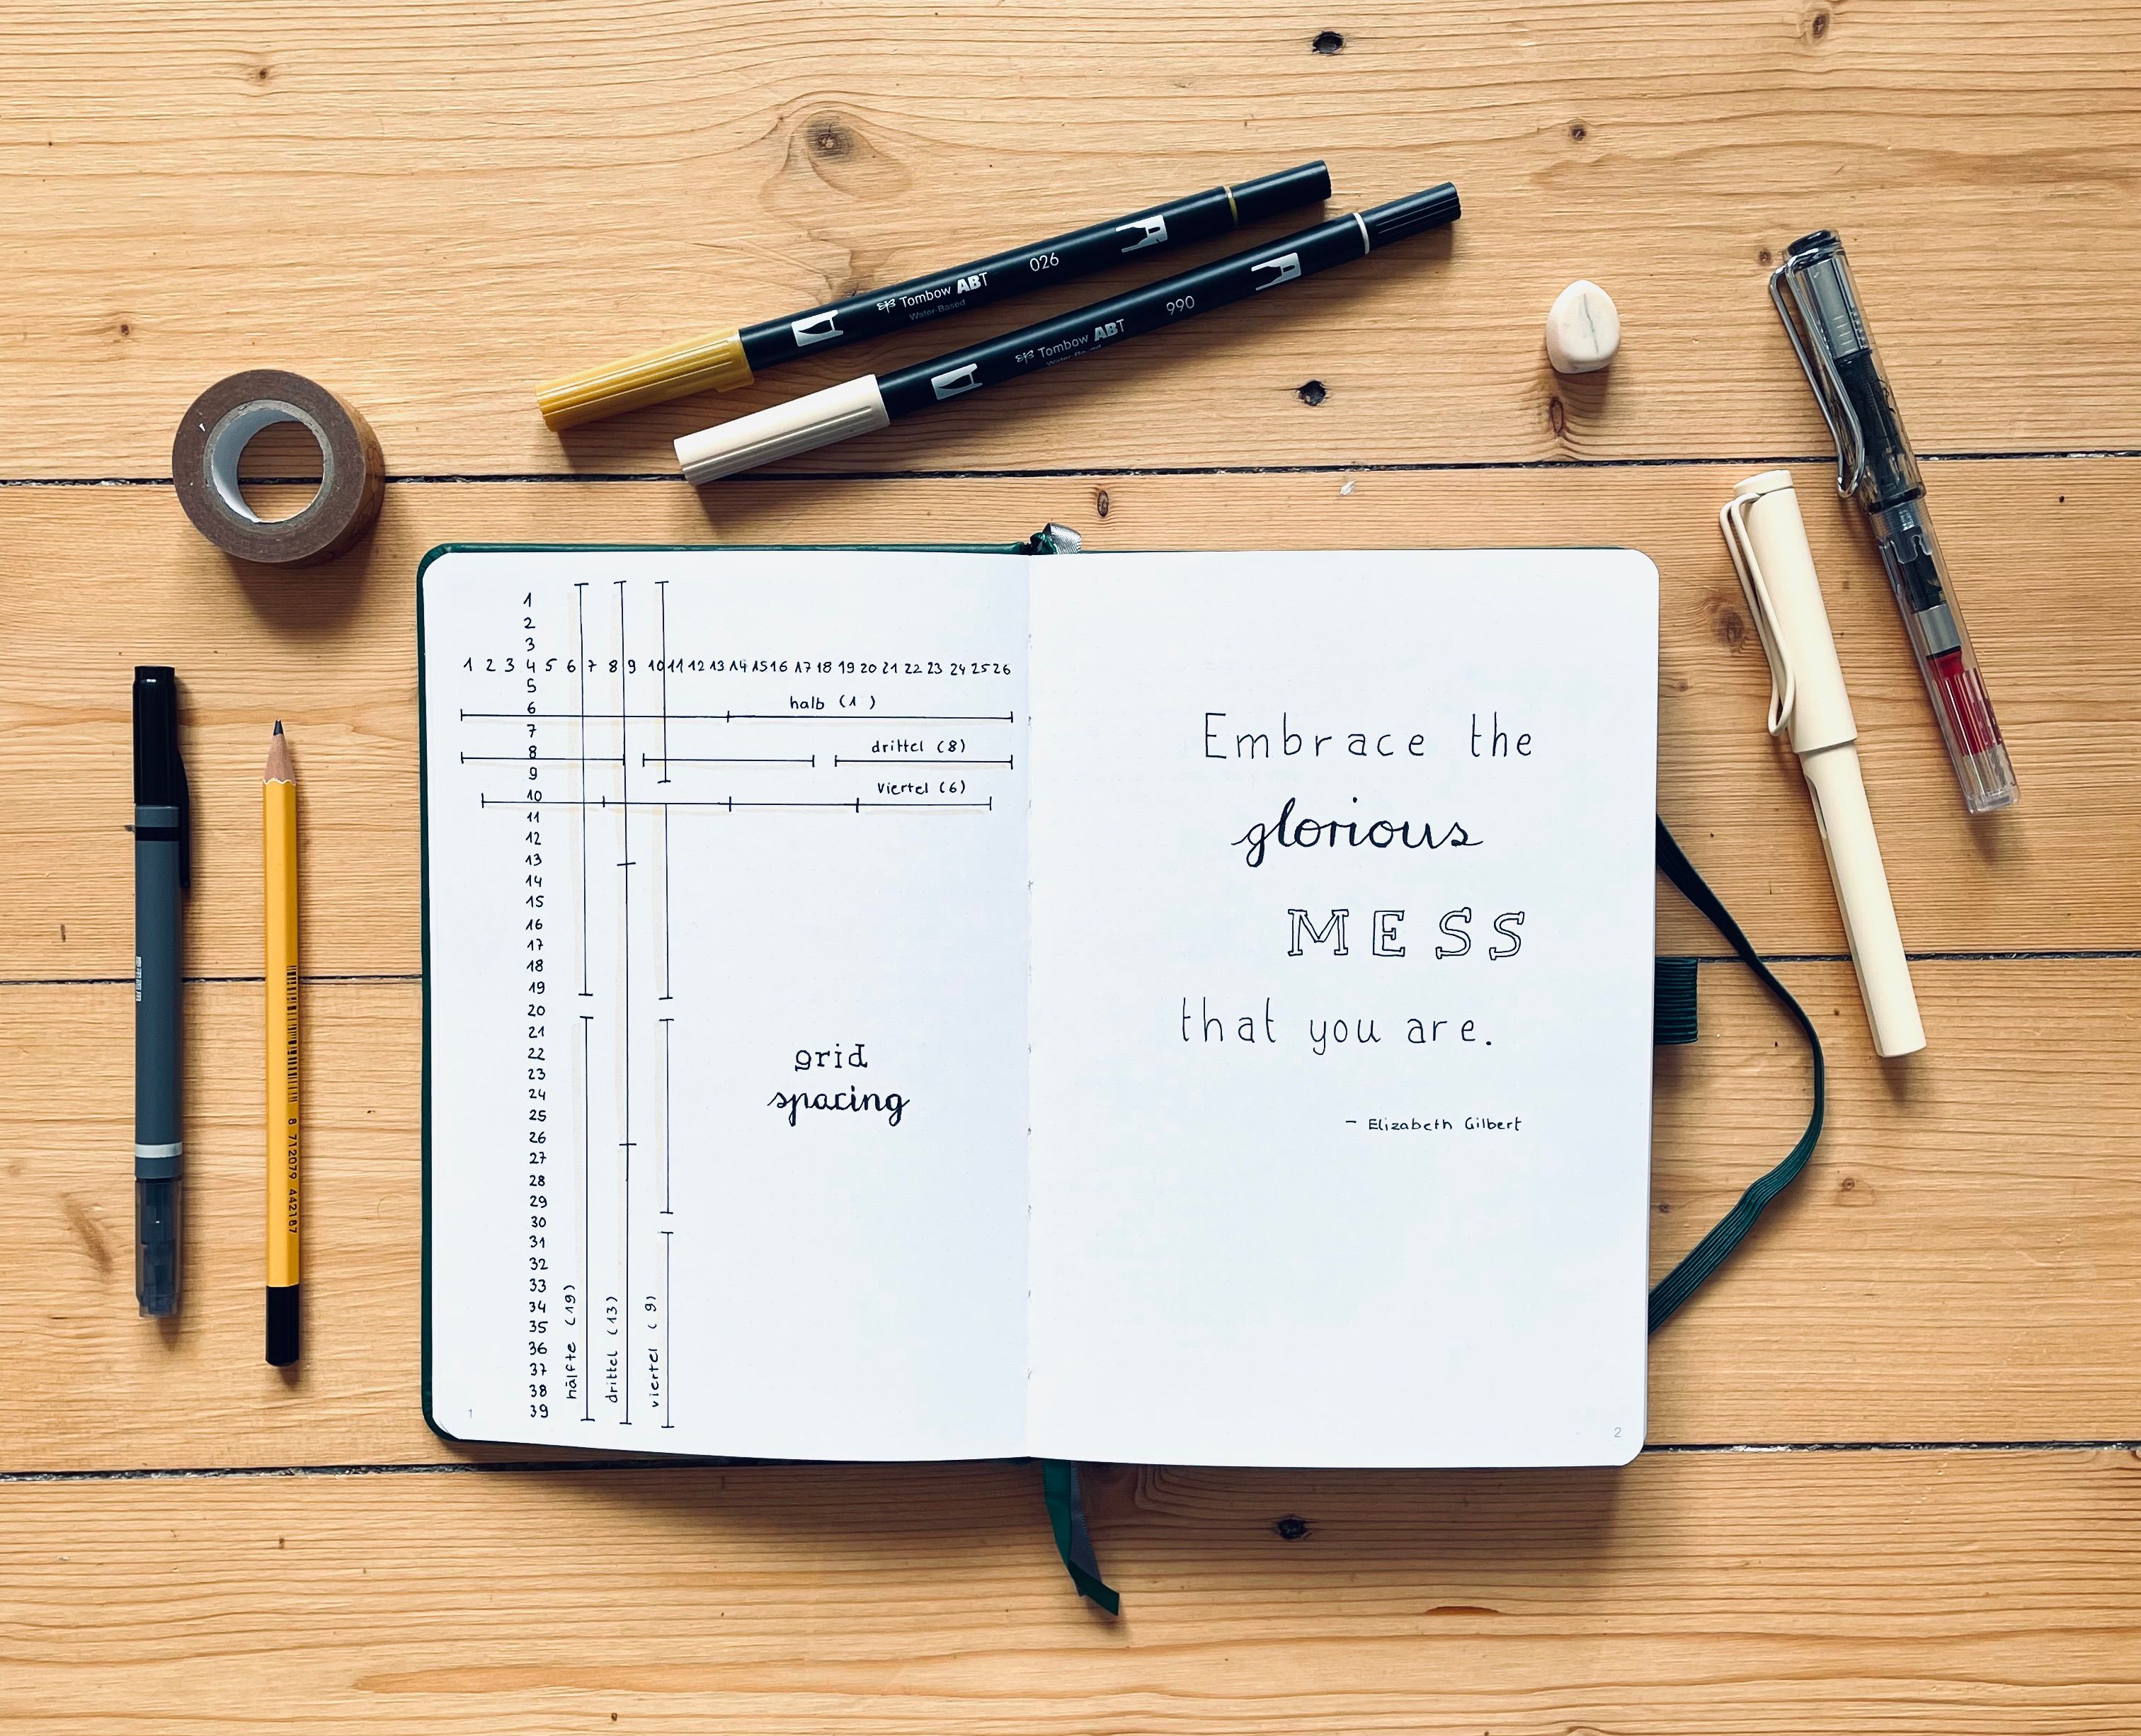 Tombow ABT
Water-Based
026
Tombow ABT
990
8 712079 442187
1
2
3
1 2 3 4 5 6 7 8 9 10 11 12 13 14 15 16 17 18 19 20 21 22 23 24 25 26
5
6
halb (1 )
7
8
drittel (8)
9
10
viertel (6)
11
12
13
14
15
16
17
18
19
20
21
22
23
24
25
26
27
28
29
30
31
32
33
34
35
36
37
38
39
hälfte (19)
drittel (13)
viertel ( 9)
grid
spacing
1
Embrace the
glorious
MESS
that you are.
– Elizabeth Gilbert
2